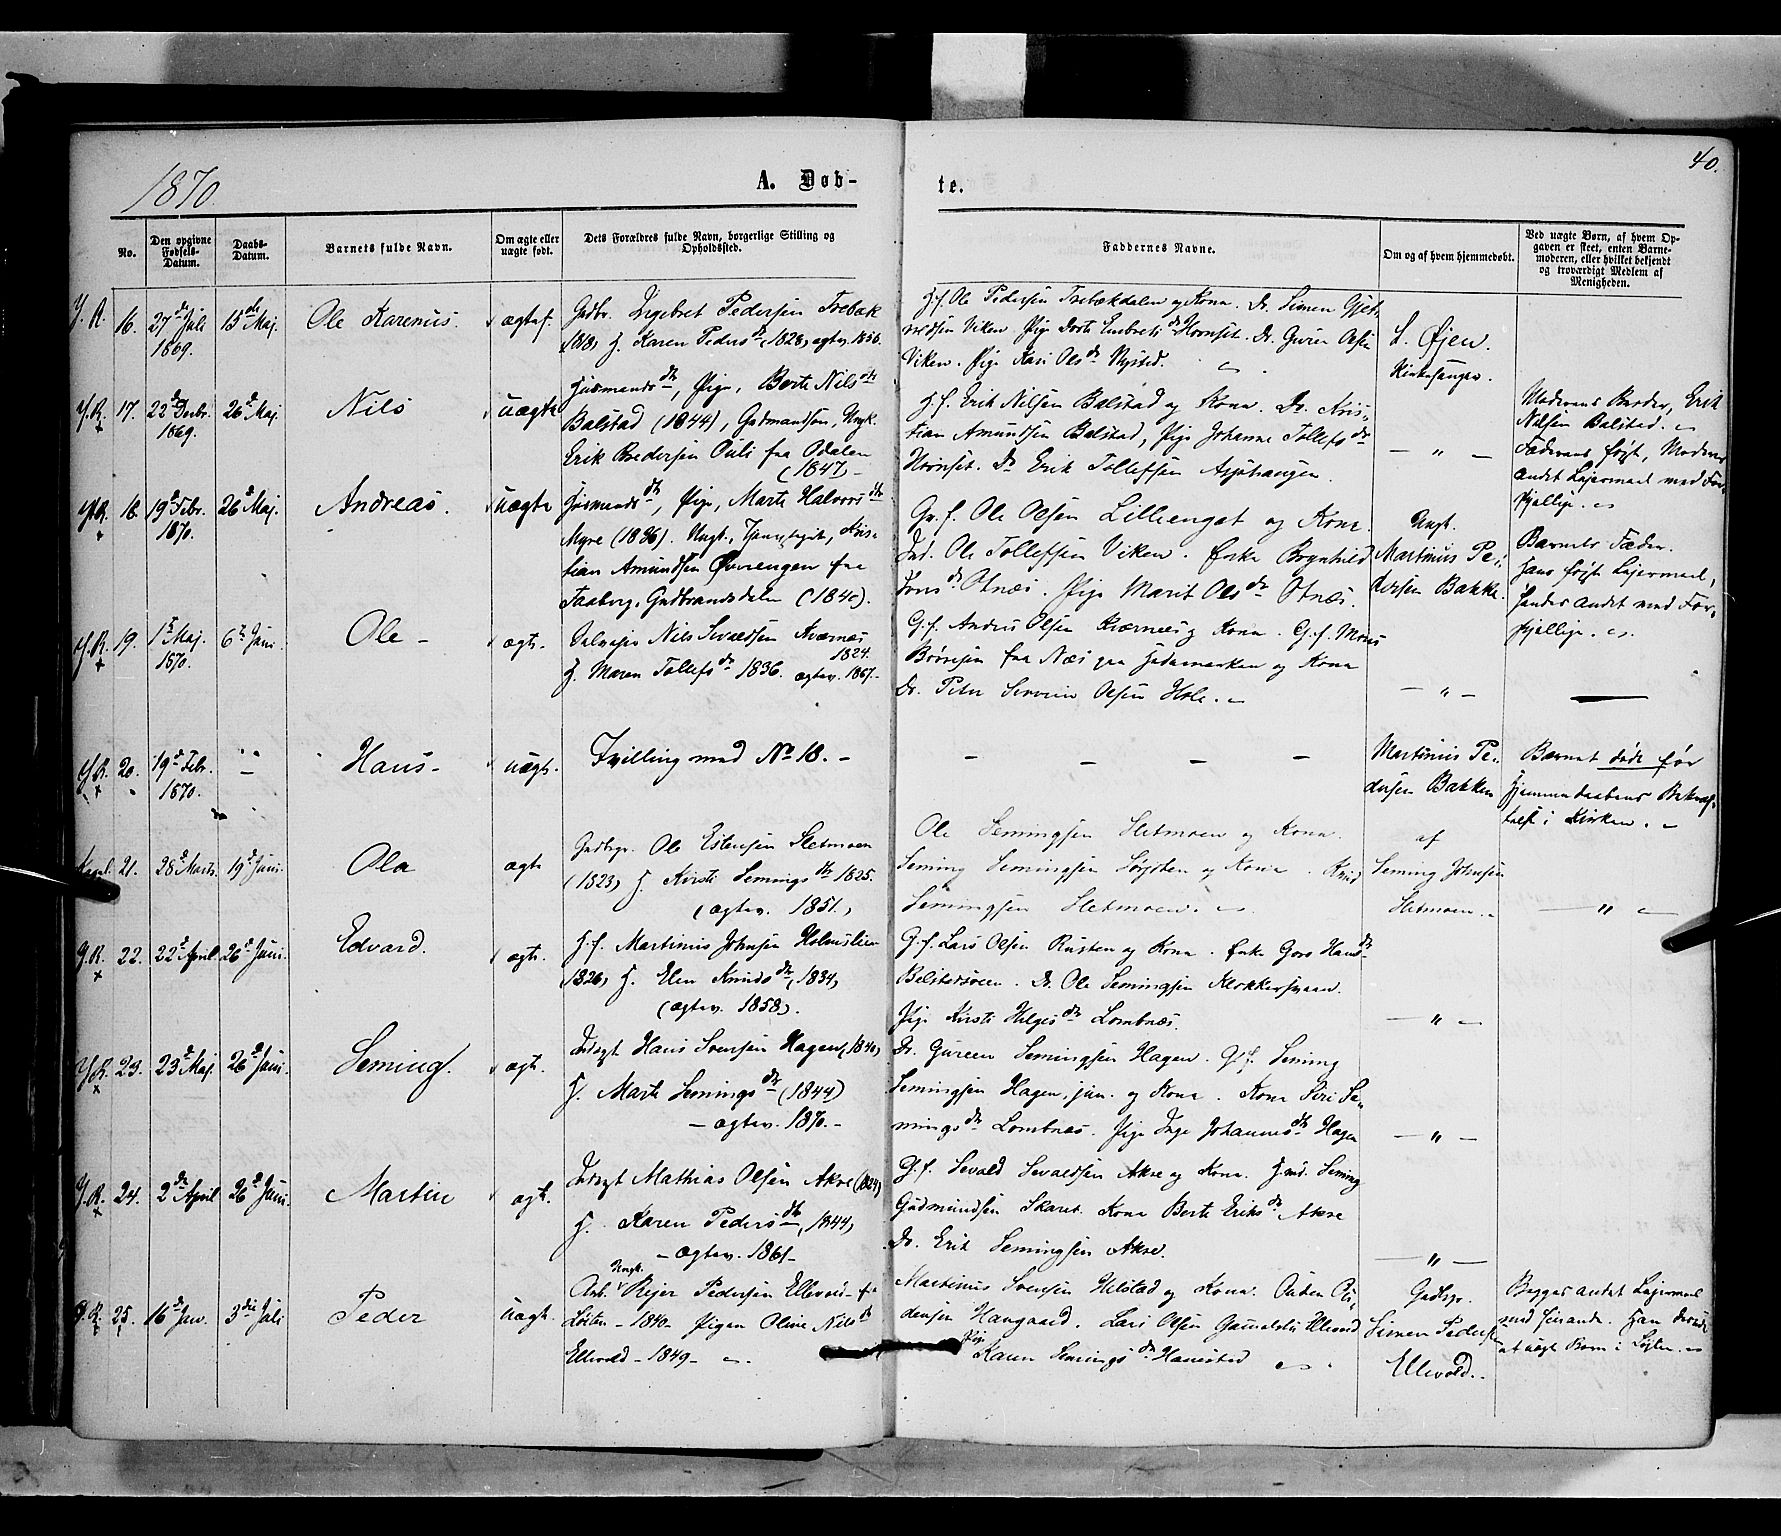 1870.
A. Døb-
te.
40.
No.
Den opgivne Fødsels-Datum.
Daabs-Datum.
Barnets fulde Navn.
Om ægte eller uægte født.
Dets Forældres fulde Navn, borgerlige Stilling og Opholdssted.
Faddernes Navne.
Om og af hvem hjemmedøbt.
Ved uægte Børn, af hvem Op-
gaven er skeet, enten Barne-
moderen, eller hvilket bekjendt
og troværdigt Medlem af
Menigheden.
Y. R. 16. 27de Juli 1869. 15de Maj. Ole Karenus. ægtef.
Gdbr. Ingebret Pedersen Trebæk
1818, H. Karen Pedersdtr (1828) ægtev. 1856.
G.f. Ole Pedersen Trebækdalen og Kone. Dr. Simen
Viken. Pige Dorte Embretsdtr Hornset. Dr. Guren Olsen
Viken. Pige Kari Olsdtr Nysted.
L. Øjen.
Kirkesanger.
Y.R. 17. 22de Decbr. 1869. 26de Maj. Nils uægte
Husmandsdtr, Pige, Berte Nilsdtr
Balstad (1844), Gudmandsøn, Ungk.
Erik Pedersen Ouli fra Odalen
(1847) -
G.f. Erik Nilsen Balstad og Kone. Dr. Kris-
tian Amundsen Balstad, Pige Johanne Tollefsdtr
Hornset. Dr Erik Tollefsen Asphaugen.
- " -
Moderens Broder, Erik
Nilsen Balstad.
Faderens første, Moderens
andet Lejermaal med For-
skjellige.
Y.R. 18. 19de Febr. 1870. 26de Maj. Andreas. uægte
Husmandsdtr, Pige, Marte Halvorsdtr
Myre (1836). Ungk., Kris-
tian Amundsen Øverengen fra
Faaberg, Gudbrandsdalen (1840).
Gr.f. Ole Olsen Lillienget og Kone.
Ind. Ole Tollefsen Viken. Enke Brynhild
Jonsdr Otnæs. Pige Marit Olsdr Otnæs.
Ungk.
Martinus Pe-
dersen Bakke.
Barnets Fader.
Hans første Lejermaal,
hendes andet med For-
skjellige.
Y.R. 19. 1ste Maj. 1870. 6te Juni. Ole - ægte.
Selvejer Nils Sevaldsen Kværnes
1824.
H. Maren Tollefsdr 1836. ægtev. 1867.
G.f. Andres Olsen Kværnes og Kone. G.f. Mons
Børresen fra Næs paa Hedemarken og Kone
Dr. Peter Severin Olsen Hole.
- " -
Y.R. 20. 19de Febr. 1870. " - Hans - uægte.
Tvilling med No 18. -
- - - -
Martinus Pe-
dersen Bakken
Barnet døde før
Hjemmedaabens Bekræf-
telse i Kirken.
Kapl. 21. 28de Marts. 19de Juni. Ola ægte
Gaardbgr. Ole Estensen Sletmoen
(1823) H. Kirsti Semingsdtr 1825.
(ægtev. 1851.)
Ole Semingsen Sletmoen og Kone.
Seming Semingsen og Kone. Knud
Semingsen Sletmoen.
af
Seming Johnsen
Sletmoen.
- " -
Y.R. 22. 22de April 26de Juni. Edvard. ægte.
G.f. Martinus Johnsen Holmslien
1826, H. Elen Knudsdtr, (1834)
(ægtev. 1858).
G.f. Lars Olsen Rusten og Kone. Enke Goro Hansdtr
Dr. Ole Semingsen Klokkersveen.
Pige Kirsti Helgesdtr Lombnæs.
- " -
Y.R. 23. 23de Maj. 26de Juni. Seming. ægte.
Indsgt Hans Svensen Hagen, (1840)
H. Marte Semingsdtr (1844)
- ægtev. 1870. -
Dr. Gureen Semingsen Hagen. G.f. Seming
Semingsen Hagen, jun. og Kone. Kone Siri Se-
mingsdtr Lombnæs. Pige Inge Johannesdtr Hagen
- " -
Y.R. 24. 2den April 26de Juni. Martin ægte.
Indsgt Mathias Olsen Akre (1824)
H. Karen Pedersdtr, 1844,
- ægtev. 1861 -
G.f. Sevald Sevaldsen Akre og Kone. Hmd. Seming
Gudmundsen Skaret. Kone Berte Eriksdr Akre
Dr. Erik Semingsen Akre.
- " -
Y.R. 25. 16de Jan. 3die Juli Peder uægte.
Ungk.
Arb. Rejer Pedersen Ellevold - fra
Løiten - 1840. Pigen Oline Nilsdr
Ellevold - 1849 -
Martinus Svensen Helstad og Kone.
densen Haugaard. Lars Olsen
Pige Karen Semingsdtr Hanestad
Gaardbgr.
Simen Pedersen
Ellevold.
Begges andet Lejermaal
med hinanden. Han
et uægte Barn i Løjten.